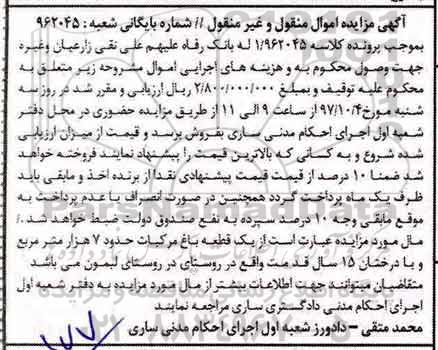 آگهی مزایده اموال منقول و غیر منقول // شماره بایگانی شعبه : ۹۶۲۰۴۵
بموجب پرونده کلاسه ۱/۹۶۲۰۴۵ له بانک رفاه علیهم علی نقی زارعیان وغیره
جهت وصول محکوم به و هزینه های اجرایی اموال مشروحه زیر متعلق به
محکوم علیه توقیف و بمبلغ ۲/۸۰۰/۰۰۰/۰۰۰ ریال ارزیابی و مقرر شد در روز سه
شنبه مورخ۹۷/۱۰/۴ از ساعت ۹ الی ۱۱ از طریق مزایده حضوری در محل دفتر
شعبه اول اجرای احکام مدنی ساری بفروش برسد و قیمت از میزان ارزیابی
شده شروع و به کسانی که بالاترین قیمت را پیشنهاد نمایند فروخته خواهد
شد ضمنا ۱۰ درصد از قیمت قیمت پیشنهادی نقدا از برنده اخذ و مابقی باید
ظرف یک ماه پرداخت گردد همچنین در صورت انصراف یا عدم پرداخت به
موقع مابقی وجه ۱۰ درصد سپرده به نفع صندوق دولت ضبط خواهد شد ./
مال مورد مزایده عبارت است از یک قطعه باغ مرکبات حدود ۷ هزار متر مربع
و با درختان ۱۵ سال قدمت واقع در روستای در روستای لیمون می باشد
متقاضیان میتوانند جهت اطلاعات بیشتر از مال مورد مزایده به دفتر شعبه اول
اجرای احکام مدنی دادگستری ساری مراجعه نمایند
محمد متقی – دادورز شعبه اول اجرای احکام مدنی ساری
۱۷۷